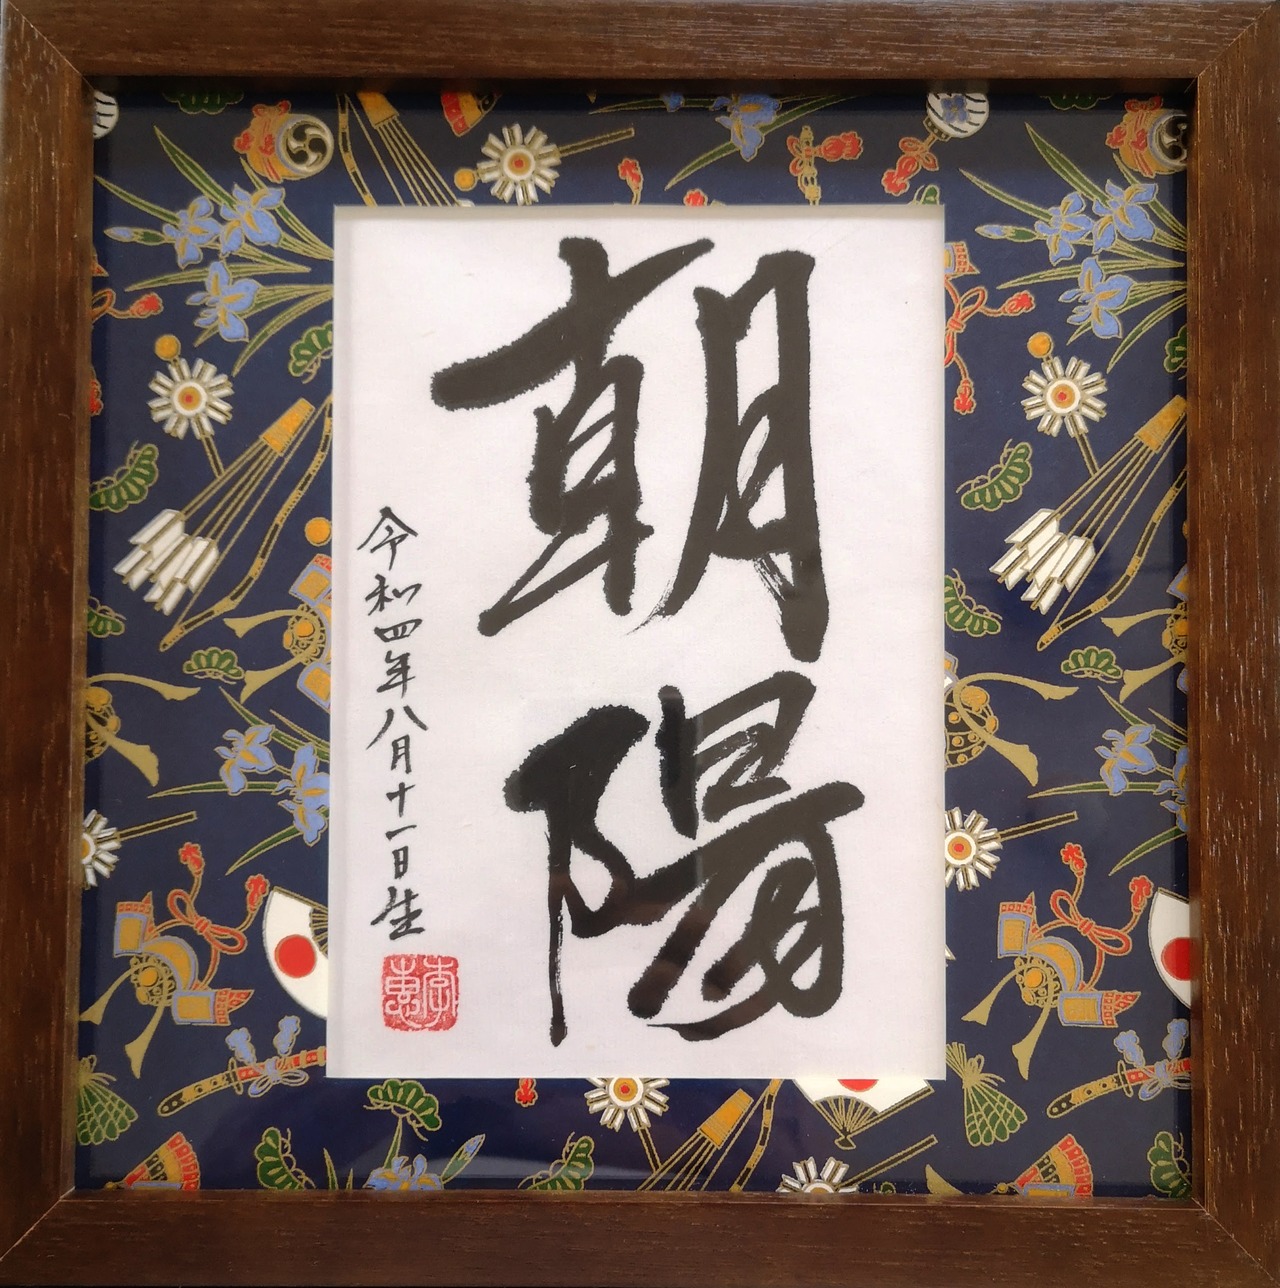 朝陽
令和四年八月十一日生